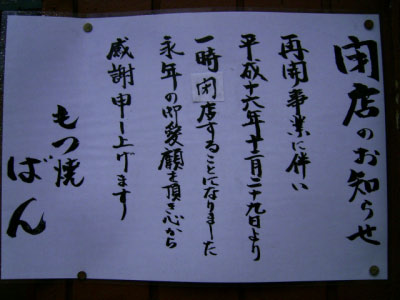 閉店のお知らせ
再開事業に伴い
平成十六年十二月二十九日より
一時閉店することになりました
永年の御愛顧を頂き心から
感謝申し上げます
もつ焼
ばん